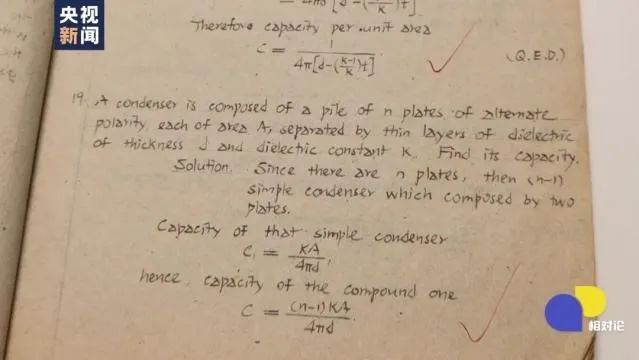 央视
新闻
= 1/4πs [d-(k-1/k)t]
Therefore capacity per unit area
C = 1/4π[d-(k-1/k)t]
(Q.E.D.)
19. A condenser is composed of a pile of n plates of alternate
polarity, each of area A, separated by thin layers of dielectric
of thickness d and dielectric constant K. Find its capacity.
Solution. Since there are n plates, then (n-1)
simple condenser which composed by two
plates.
Capacity of that simple condenser
C₁ = KA/4πd
hence, capacity of the compound one
C = (n-1)KA/4πd.
相对论